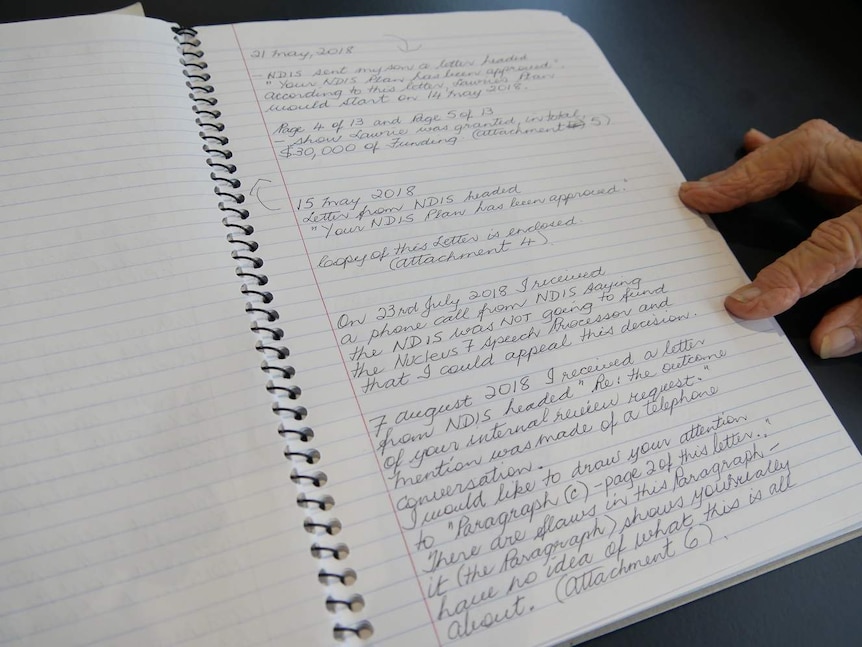 21 May, 2018
- NDIS sent my son a letter headed
"Your NDIS Plan has been approved".
according to this letter, Lawrie's Plan
would start on 14 May 2018.
Page 4 of 13 and Page 5 of 13
- show Lawrie was granted, in total,
$30,000 of Funding. (attachment 5)
15 May 2018
Letter from NDIS headed
"Your NDIS Plan has been approved."
Copy of this Letter is enclosed.
(Attachment 4)
On 23rd July 2018 I received
a phone call from NDIS saying
the NDIS was NOT going to fund
the Nucleus 7 Speech Processor and
that I could appeal this decision.
7 august 2018 I received a letter
from NDIS headed "Re: the outcome
of your internal review request."
Mention was made of a telephone
conversation.
I would like to draw your attention
to "Paragraph (c) - page 2 of this letter."
There are flaws in this Paragraph -
it (the Paragraph) shows you really
have no idea of what this is all
about. (Attachment 6).